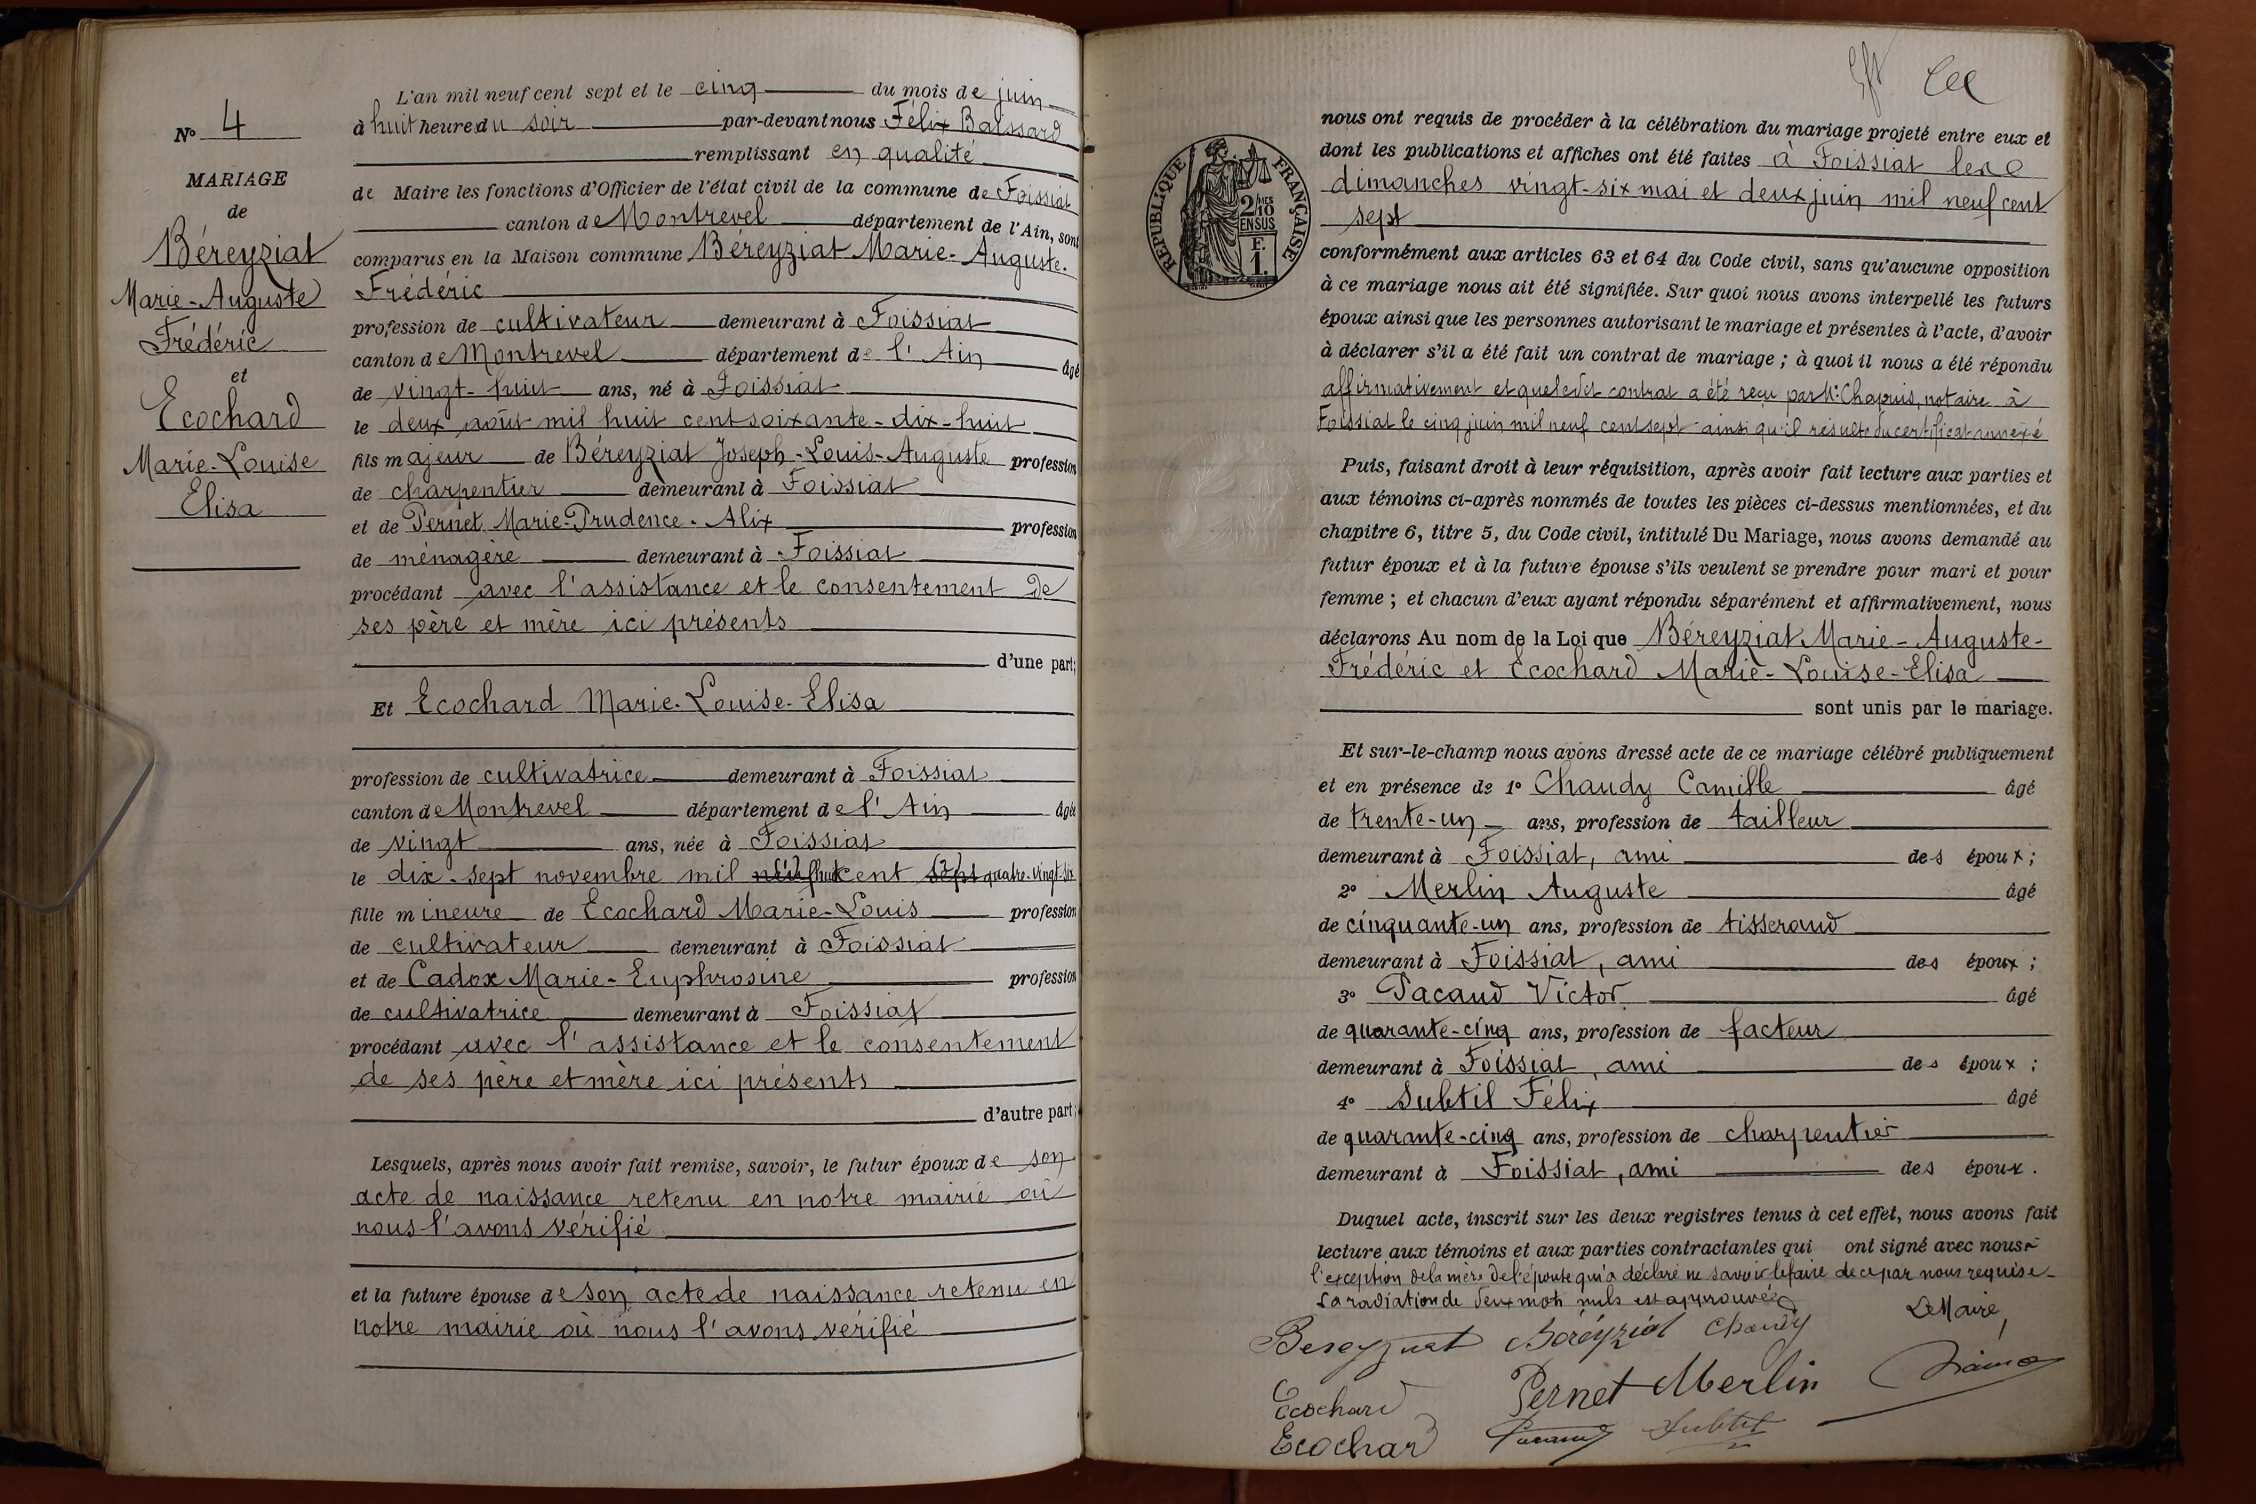 N° 4
MARIAGE
de
Béreyziat
Marie-Auguste
Frédéric
et
Ecochard
Marie-Louise
Elisa
L'an mil neuf cent sept et le cinq du mois de juin
à huit heures du soir par-devant nous Félix
remplissant en qualité
de Maire les fonctions d'Officier de l'état civil de la commune de Foissiat
canton de Montrevel département de l'Ain, sont
comparus en la Maison commune Béreyziat Marie-Auguste-
Frédéric
profession de cultivateur demeurant à Foissiat
canton de Montrevel département de l'Ain âgé
de vingt-huit ans, né à Foissiat
le deux août mil huit cent soixante-dix-huit
fils majeur de Béreyziat Joseph-Louis-Auguste profession
de charpentier demeurant à Foissiat
et de Pernet Marie-Prudence-Alix profession
de ménagère demeurant à Foissiat
procédant avec l'assistance et le consentement de
ses père et mère ici présents
d'une part;
Et Ecochard Marie-Louise-Elisa
profession de cultivatrice demeurant à Foissiat
canton de Montrevel département de l'Ain âgée
de vingt ans, née à Foissiat
le dix-sept novembre mil neuf huit cent sept quatre-vingt-six
fille mineure de Ecochard Marie-Louis profession
de cultivateur demeurant à Foissiat
et de Cadox Marie-Euphrosine profession
de cultivatrice demeurant à Foissiat
procédant avec l'assistance et le consentement
de ses père et mère ici présents
d'autre part;
Lesquels, après nous avoir fait remise, savoir, le futur époux de son
acte de naissance retenu en notre mairie où
nous l'avons vérifié
et la future épouse de son acte de naissance retenu en
notre mairie où nous l'avons vérifié
RÉPUBLIQUE FRANÇAISE
2/10 MES
EN SUS
F.
1.
nous ont requis de procéder à la célébration du mariage projeté entre eux et
dont les publications et affiches ont été faites à Foissiat les
dimanches vingt-six mai et deux juin mil neuf cent
sept
conformément aux articles 63 et 64 du Code civil, sans qu'aucune opposition
à ce mariage nous ait été signifiée. Sur quoi nous avons interpellé les futurs
époux ainsi que les personnes autorisant le mariage et présentes à l'acte, d'avoir
à déclarer s'il a été fait un contrat de mariage ; à quoi il nous a été répondu
affirmativement et que ledit contrat a été reçu par Me Chapuis, notaire à
Foissiat le cinq juin mil neuf cent sept ainsi qu'il résulte du certificat annexé
Puis, faisant droit à leur réquisition, après avoir fait lecture aux parties et
aux témoins ci-après nommés de toutes les pièces ci-dessus mentionnées, et du
chapitre 6, titre 5, du Code civil, intitulé Du Mariage, nous avons demandé au
futur époux et à la future épouse s'ils veulent se prendre pour mari et pour
femme ; et chacun d'eux ayant répondu séparément et affirmativement, nous
déclarons Au nom de la Loi que Béreyziat Marie-Auguste-
Frédéric et Ecochard Marie-Louise-Elisa
sont unis par le mariage.
Et sur-le-champ nous avons dressé acte de ce mariage célébré publiquement
et en présence de 1° Chaudy Camille âgé
de trente-un ans, profession de tailleur
demeurant à Foissiat, ami des époux ;
2° Merlin Auguste âgé
de cinquante-un ans, profession de tisserand
demeurant à Foissiat, ami des époux ;
3° Pacaud Victor âgé
de quarante-cinq ans, profession de facteur
demeurant à Foissiat, ami des époux ;
4° Subtil Félix âgé
de quarante-cinq ans, profession de charpentier
demeurant à Foissiat, ami des époux.
Duquel acte, inscrit sur les deux registres tenus à cet effet, nous avons fait
lecture aux témoins et aux parties contractantes qui ont signé avec nous à
l'exception de la mère de l'épouse qui a déclaré ne savoir le faire de ce par nous requise.
La radiation de deux mots nuls est approuvée
Le Maire,
Bereyziat Béréyziat Chaudy
Ecochard Pernet Merlin
Ecochard Pacaud Subtil